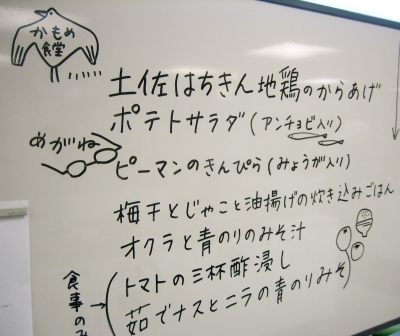 かもめ
食堂
土佐はちきん地鶏のからあげ
ポテトサラダ(アンチョビ入り)
めがね
ピーマンのきんぴら(みょうが入り)
梅干とじゃこと油揚げの炊き込みごはん
オクラと青のりのみそ汁
食事のみ
トマトの三杯酢浸し
茹でナスとニラの青のりみそ